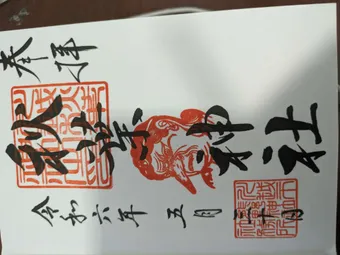 奉拝
秋葉神社
令和六年 五月三十日